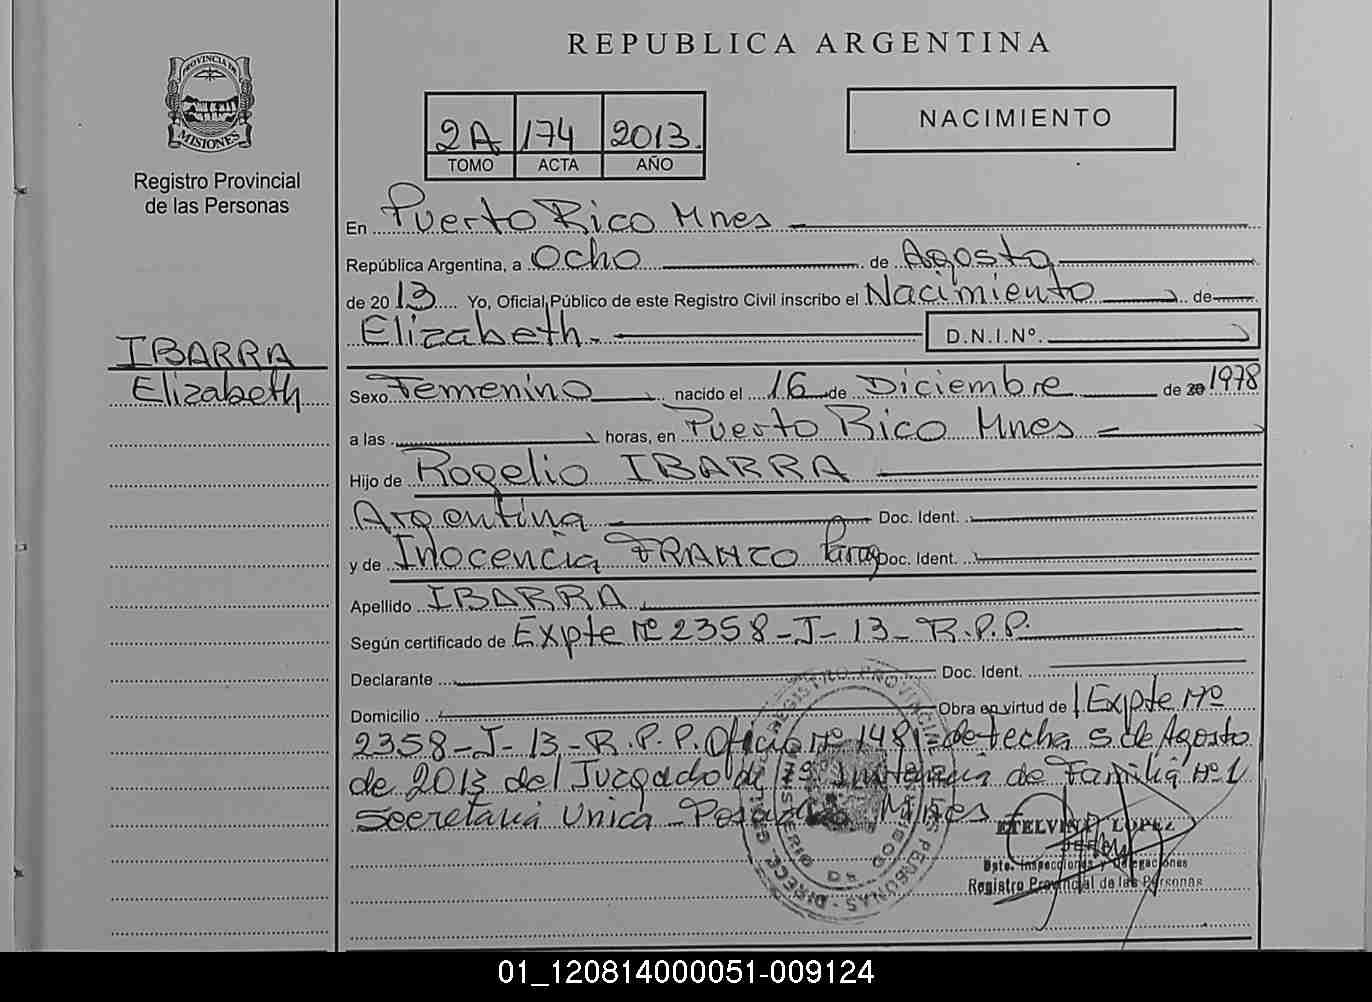 REPUBLICA ARGENTINA
PROVINCIA DE
MISIONES
Registro Provincial
de las Personas
2A 174 2013.
TOMO ACTA AÑO
NACIMIENTO
En Puerto Rico Mnes
República Argentina, a Ocho de Agosto
de 2013 Yo, Oficial Público de este Registro Civil inscribo el Nacimiento de
Elizabeth.
D.N.I.Nº.
IBARRA
Elizabeth
Sexo Femenino nacido el 16 de Diciembre de 20 1978
a las horas, en Puerto Rico Mnes
Hijo de Rogelio IBARRA
Argentina Doc. Ident.
y de Inocencia FRANCO Parag Doc. Ident.
Apellido IBARRA
Según certificado de Expte Nº 2358-J-13-R.P.P.
Declarante Doc. Ident.
Domicilio Obra en virtud de Expte Nº
2358-J-13-R.P.P. Oficio Nº 1481 de fecha 5 de Agosto
de 2013 del Juzgado de 1º Instancia de Familia Nº 1
Secretaria Unica - Posadas Mnes
ETELVINA LOPEZ
Dpto. Inspecciones y Delegaciones
Registro Provincial de las Personas
01_120814000051-009124